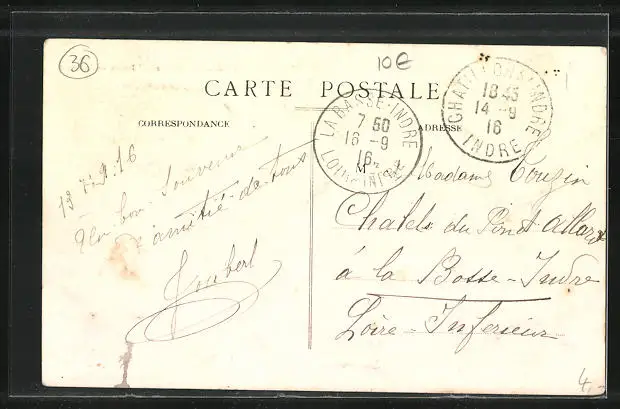 36
10€
CARTE POSTALE
CORRESPONDANCE
ADRESSE
LA BASSE-INDRE
7 50
16 -9
16
LOIRE-INFRE
CHATILLON-S-INDRE
18 45
14 -9
16
INDRE
13 7bre 16
Un bon Souvenir
d'amitié de tous
Joubert
Madame Touzin
Chalet du Pinot allard
à la Basse-Indre
Loire-Inferieur
4,-